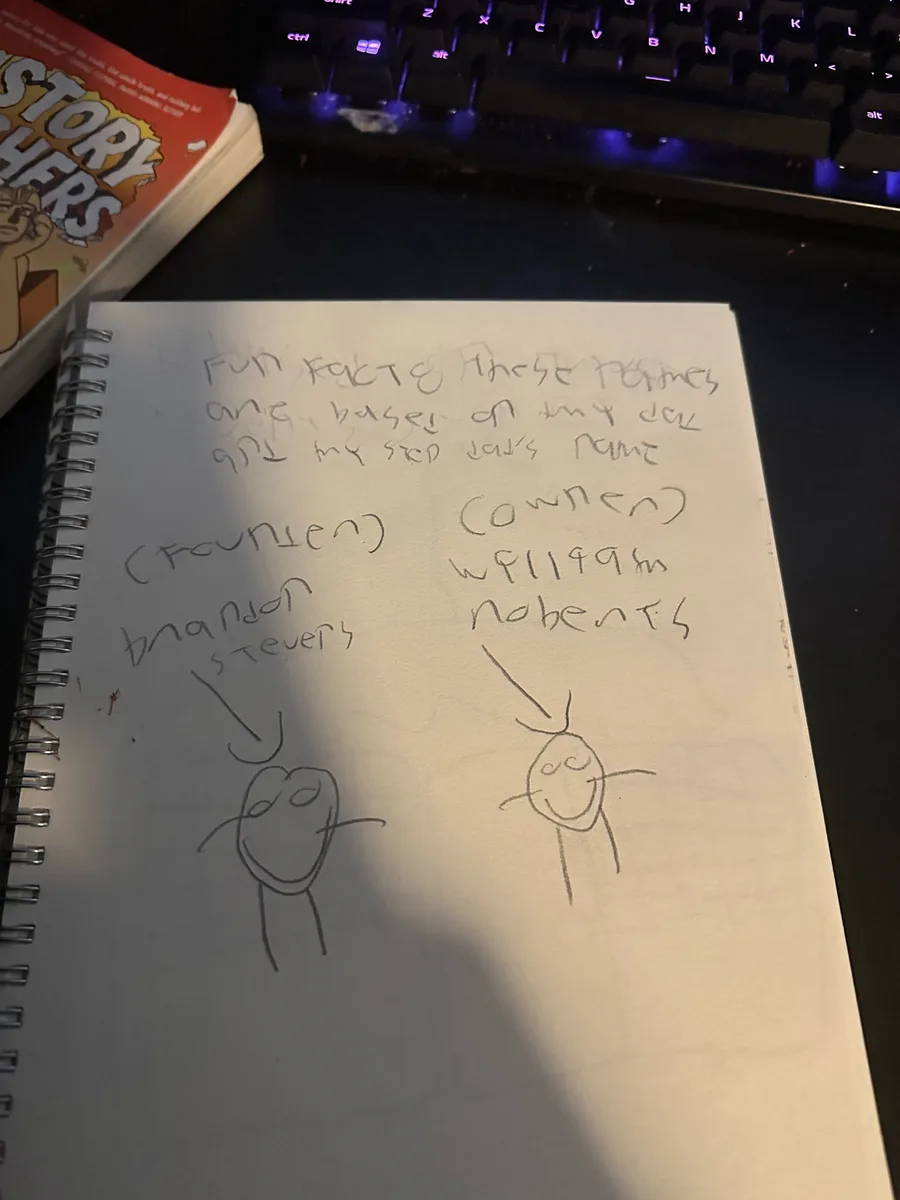 STORY
HERS
shift
Z
X
C
V
B
N
M
G
H
J
K
L
ctrl
alt
<
>
alt
Fun Facts these names
are based on my dad
and my step dad's name
(Founder)
(owner)
brandon
stevens
william
roberts